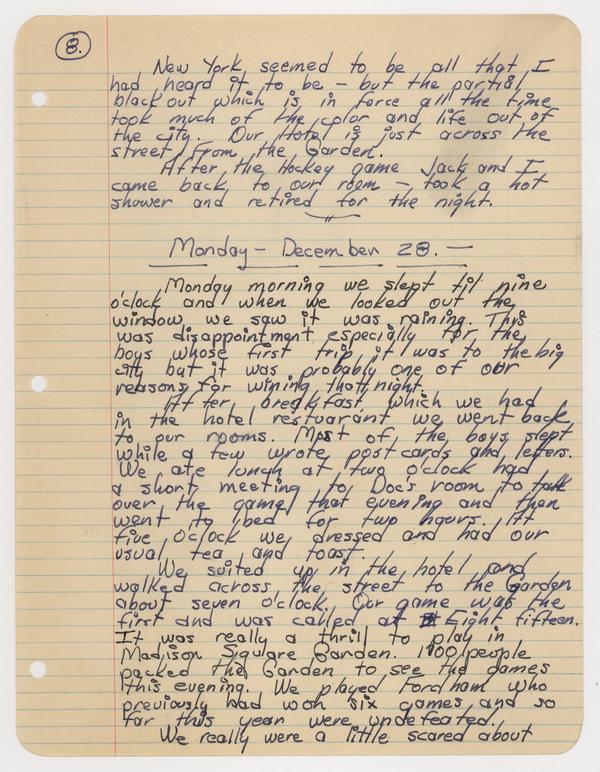 8.
New York seemed to be all that I
had heard it to be – but the partial
blackout which is in force all the time
took much of the color and life out of
the city. Our Hotel is just across the
street from the Garden.
After the Hockey game Jack and I
came back to our room – took a hot
shower and retired for the night.
Monday – December 28. –
Monday morning we slept til nine
o'clock and when we looked out the
window we saw it was raining. This
was disappointment especially for the
boys whose first trip it was to the big
city but it was probably one of our
reasons for wining that night.
After breakfast which we had
in the hotel restuarant we went back
to our rooms. Most of the boys slept
while a few wrote post cards and letters.
We ate lunch at two o'clock had
a short meeting to Doc's room to talk
over the game that evening and then
went to bed for two hours. At
five o'clock we dressed and had our
usual tea and toast.
We suited up in the hotel and
walked across the street to the Garden
about seven o'clock. Our game was the
first and was called at Eight fifteen.
It was really a thrill to play in
Madison Square Garden. people
packed the Garden to see the games
this evening. We played Fordham who
previously had won six games and so
far this year were undefeated.
We really were a little scared about